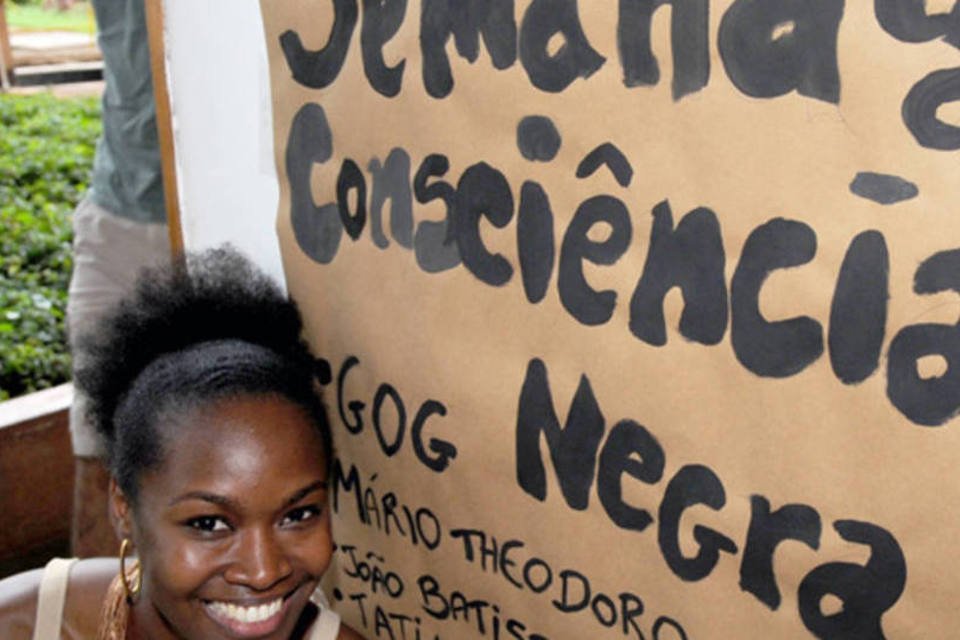 Semana
Consciência
Negra
• GOG
• MÁRIO THEODORO
• JOÃO BATIS
• TATI